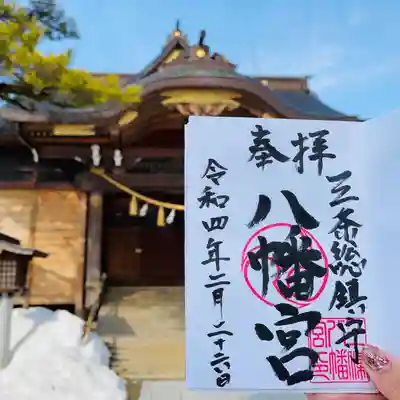 三条総鎮守
奉拝
八幡宮
令和四年二月二十六日